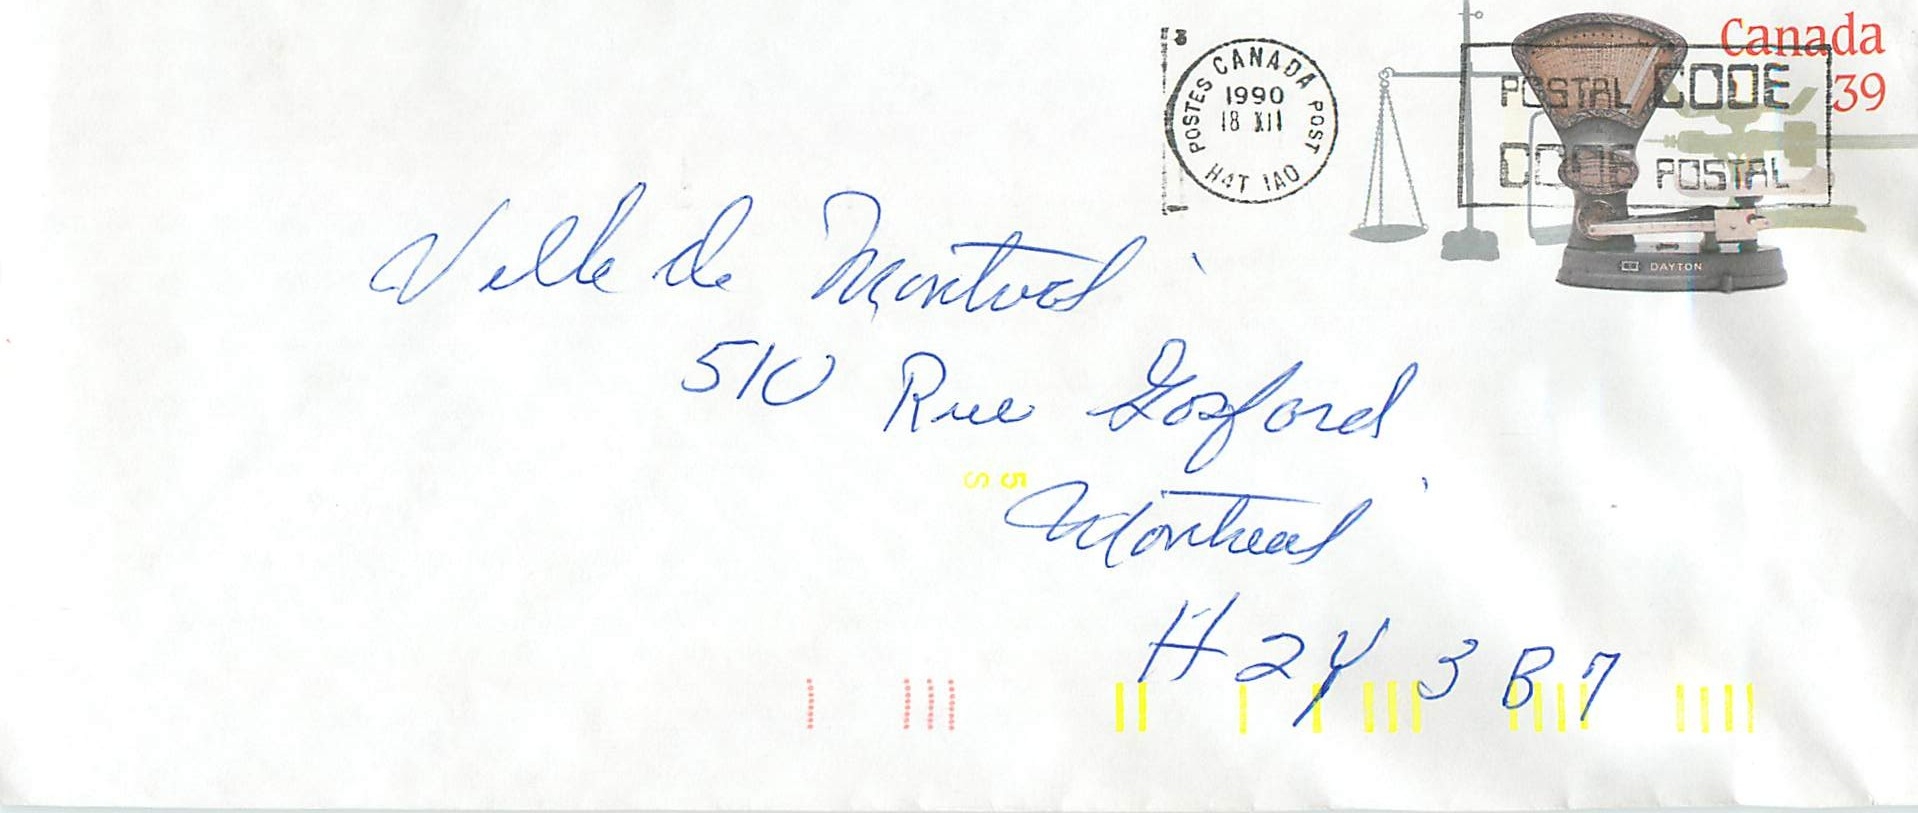 Canada
39
POSTES CANADA POST
1990
18 XII
H4T 1A0
3
POSTAL CODE
CODE POSTAL
DAYTON
Ville de Montreal
510 Rue Gosford
S 5
Montreal
H2Y 3B7